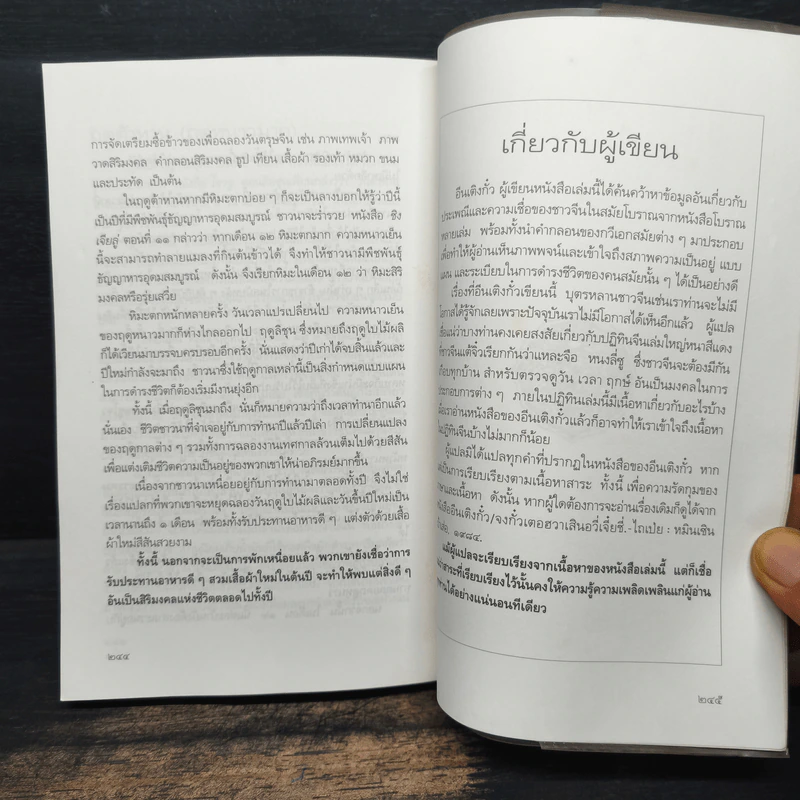 การจัดเตรียมซื้อข้าวของเพื่อฉลองวันตรุษจีน เช่น ภาพเทพเจ้า ภาพ
วาดสิริมงคล คำกลอนสิริมงคล ธูป เทียน เสื้อผ้า รองเท้า หมวก ขนม
และประทัด เป็นต้น
ในฤดูต้าหานหากมีหิมะตกบ่อย ๆ ก็จะเป็นลางบอกให้รู้ว่าปีนี้
เป็นปีที่มีพืชพันธุ์ธัญญาหารอุดมสมบูรณ์ ชาวนาจะร่ำรวย หนังสือ ชิง
เจียลู่ ตอนที่ ๑๑ กล่าวว่า หากเดือน ๑๒ หิมะตกมาก ความหนาวเย็น
นี้จะสามารถทำลายแมลงที่กินต้นข้าวได้ จึงทำให้ชาวนามีพืชพันธุ์
ธัญญาหารอุดมสมบูรณ์ ดังนั้น จึงเรียกหิมะในเดือน ๑๒ ว่า หิมะสิริ
มงคลหรือรุ่ยเสวี่ย
หิมะตกหนักหลายครั้ง วันเวลาแปรเปลี่ยนไป ความหนาวเย็น
ของฤดูหนาวมากก็ห่างไกลออกไป ฤดูลิชุน ซึ่งหมายถึงฤดูใบไม้ผลิ
ก็ได้เวียนมาบรรจบครบรอบอีกครั้ง นั่นแสดงว่าปีเก่าได้จบสิ้นแล้วและ
ปีใหม่กำลังจะมาถึง ชาวนาซึ่งใช้ฤดูกาลเหล่านี้เป็นสิ่งกำหนดแบบแผน
ในการดำรงชีวิตก็ต้องเริ่มมีงานยุ่งอีก
ทั้งนี้ เมื่อฤดูลิชุนมาถึง นั่นก็หมายความว่าถึงเวลาทำนาอีกแล้ว
นั่นเอง ชีวิตชาวนาที่จำเจอยู่กับการทำนาปีแล้วปีเล่า การเปลี่ยนแปลง
ของฤดูกาลต่าง ๆ รวมทั้งการฉลองงานเทศกาลล้วนเติมไปด้วยสีสัน
เพื่อแต่งเติมชีวิตความเป็นอยู่ของพวกเขาให้น่าอภิรมย์มากขึ้น
เนื่องจากชาวนาเหนื่อยอยู่กับการทำนามาตลอดทั้งปี จึงไม่ใช่
เรื่องแปลกที่พวกเขาจะหยุดฉลองวันฤดูใบไม้ผลิและวันขึ้นปีใหม่เป็น
เวลานานถึง ๑ เดือน พร้อมทั้งรับประทานอาหารดี ๆ แต่งตัวด้วยเสื้อ
ผ้าใหม่สีสันสวยงาม
ทั้งนี้ นอกจากจะเป็นการพักเหนื่อยแล้ว พวกเขายังเชื่อว่าการ
รับประทานอาหารดี ๆ สวมเสื้อผ้าใหม่ในต้นปี จะทำให้พบแต่สิ่งดี ๆ
อันเป็นสิริมงคลแห่งชีวิตตลอดไปทั้งปี
๒๔๔
เกี่ยวกับผู้เขียน
อีนเติงกั๋ว ผู้เขียนหนังสือเล่มนี้ได้ค้นคว้าหาข้อมูลอันเกี่ยวกับ
ประเพณีและความเชื่อของชาวจีนในสมัยโบราณจากหนังสือโบราณ
หลายเล่ม พร้อมทั้งนำคำกลอนของกวีเอกสมัยต่าง ๆ มาประกอบ
เพื่อทำให้ผู้อ่านเห็นภาพพจน์และเข้าใจถึงสภาพความเป็นอยู่ แบบ
แผน และระเบียบในการดำรงชีวิตของคนสมัยนั้น ๆ ได้เป็นอย่างดี
เรื่องที่อีนเติงกั๋วเขียนนี้ บุตรหลานชาวจีนเช่นเราท่านจะไม่มี
โอกาสได้รู้จักเลยเพราะปัจจุบันเราไม่มีโอกาสได้เห็นอีกแล้ว ผู้แปล
เชื่อแน่ว่าบางท่านคงเคยสงสัยเกี่ยวกับปฏิทินจีนเล่มใหญ่หนาสีแดง
ที่ชาวจีนแต้จิ๋วเรียกกันว่าแหละจือ หนงลี่ซู ซึ่งชาวจีนจะต้องมีกัน
เกือบทุกบ้าน สำหรับตรวจดูวัน เวลา ฤกษ์ อันเป็นมงคลในการ
ประกอบการต่าง ๆ ภายในปฏิทินเล่มนี้มีเนื้อหาเกี่ยวกับอะไรบ้าง
เมื่อเราอ่านหนังสือของอีนเติงกั๋วแล้วก็อาจทำให้เราเข้าใจถึงเนื้อหา
ในปฏิทินจีนบ้างไม่มากก็น้อย
ผู้แปลมิได้แปลทุกคำที่ปรากฏในหนังสือของอีนเติงกั๋ว หาก
แต่เป็นการเรียบเรียงตามเนื้อหาสาระ ทั้งนี้ เพื่อความรัดกุมของ
ภาษาและเนื้อหา ดังนั้น หากผู้ใดต้องการจะอ่านเรื่องเดิมก็ดูได้จาก
หนังสืออีนเติงกั๋ว/จงกั๋วเตอฮวาเสินอวี่เจี๋ยชี่.-ไถเป่ย : หมินเซิน
๑๙๘๔.
แม้ผู้แปลจะเรียบเรียงจากเนื้อหาของหนังสือเล่มนี้ แต่ก็เชื่อ
ว่าสาระที่เรียบเรียงไว้นั้นคงให้ความรู้ความเพลิดเพลินแก่ผู้อ่าน
ทุกท่านได้อย่างแน่นอนทีเดียว
๒๔๕